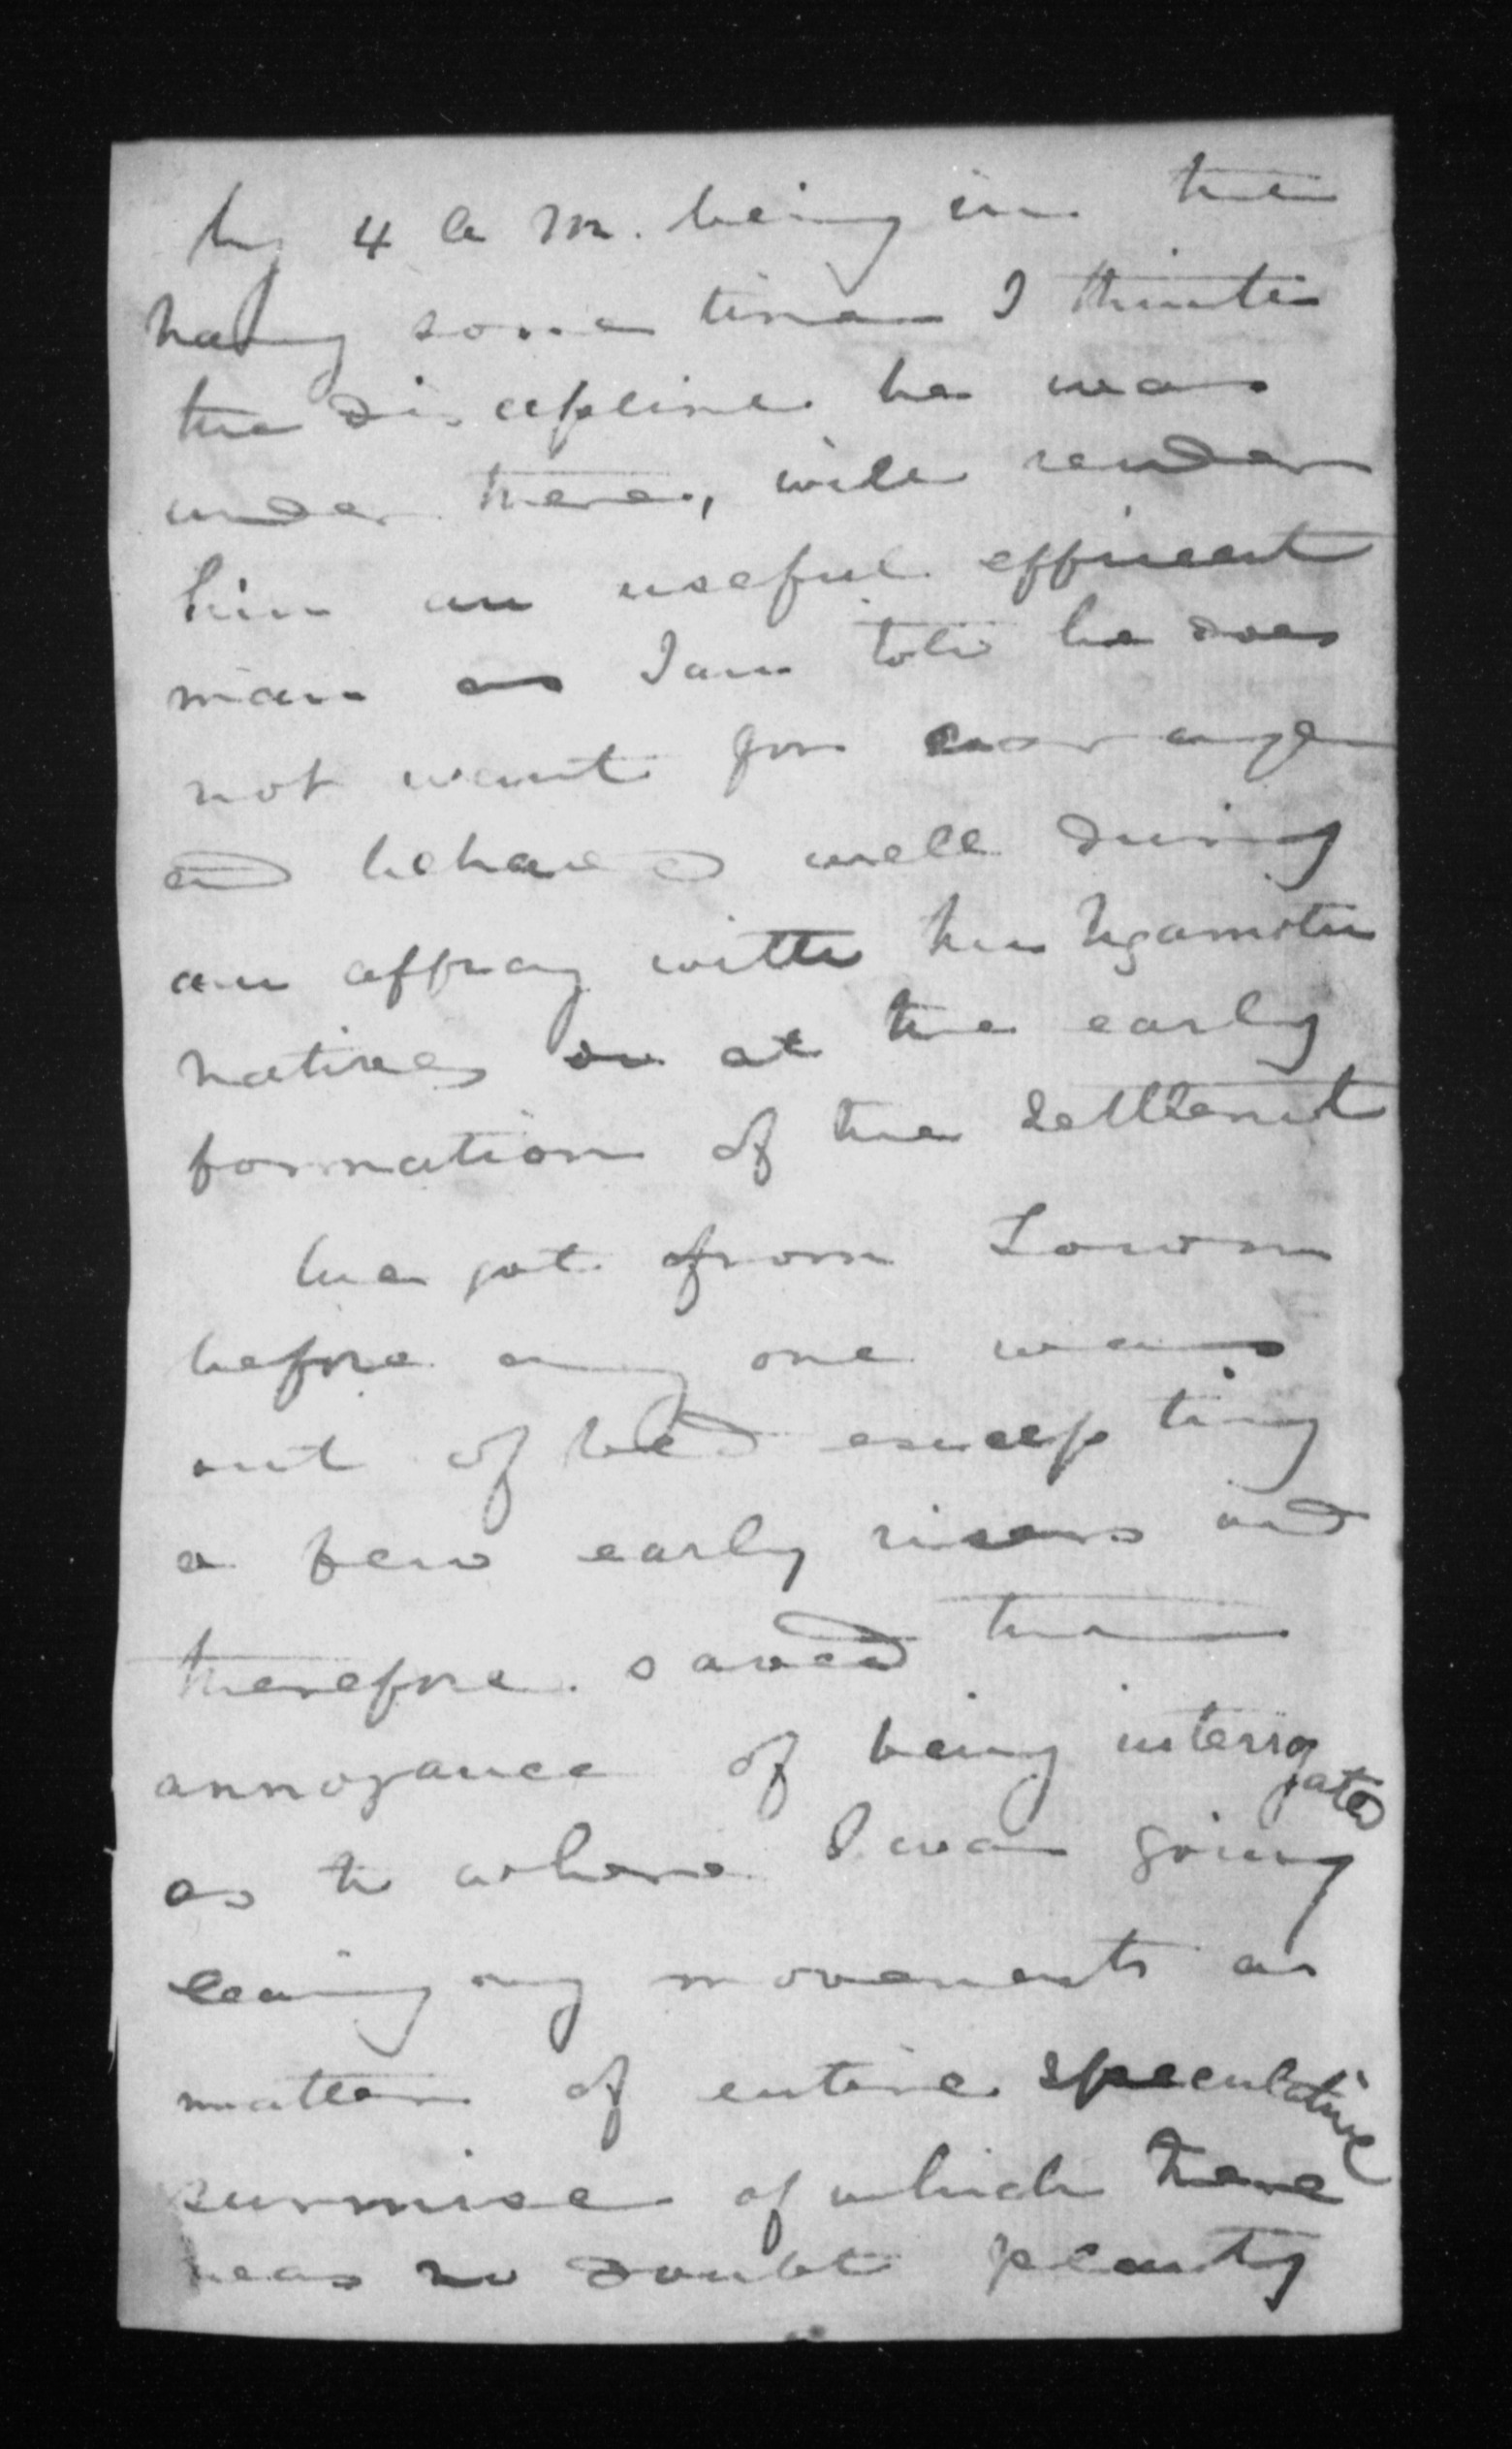 by 4 a m. being in the
navy some time I think
the discipline he was
under there, will render
him an useful efficient
man as I am told he does
not want for courage
and behaved well during
an affray with the Ngamotu
natives on at the early
formation of the settlement
We got from Town
before any one was
out of bed excepting
a few early risers and
therefore saved the
annoyance of being interrogated
as to where I was going
leaving my movements as
matter of entire speculative
surmise of which there
was no doubt plenty